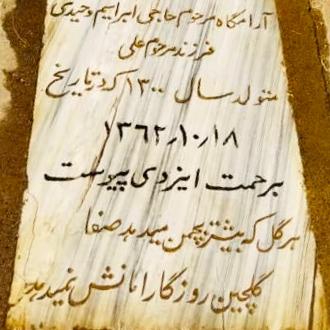 آرامگاه مرحوم حاجی ابراهیم وحیدی
فرزند مرحوم علی
متولد سال ۱۳۰۰ که در تاریخ
۱۳۶۲٫۱۰٫۱۸
برحمت ایزدی پیوست
هر گل که بیشتر بچمن میدهد صفا
گلچین روزگار امانش نمیدهد